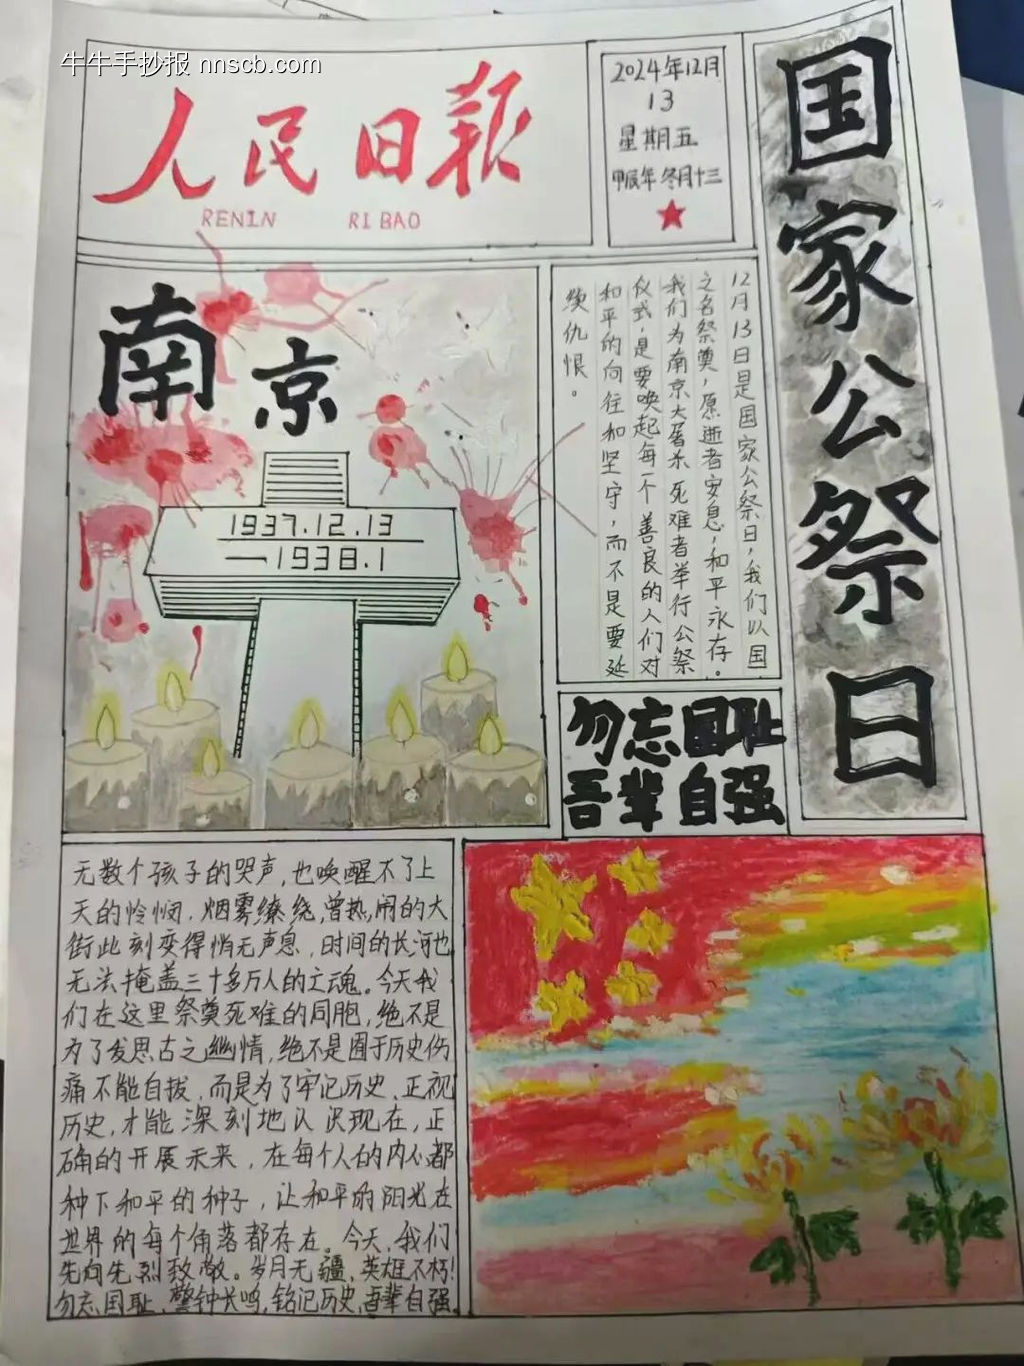 牛牛手抄报 nnscb.com
人民日報
RENIN RI BAO
2024年12月
13
星期五
甲辰年 冬月十三
国家公祭日
南京
1937.12.13
—1938.1
12月13日是国家公祭日，我们以国
之名祭奠，愿逝者安息，和平永存。
我们为南京大屠杀死难者举行公祭
仪式，是要唤起每一个善良的人们对
和平的向往和坚守，而不是要延
续仇恨。
勿忘国耻
吾辈自强
无数个孩子的哭声，也唤醒不了上
天的怜悯，烟雾缭绕，曾热闹的大
街此刻变得悄无声息，时间的长河也
无法掩盖三十多万人的亡魂。今天我
们在这里祭奠死难的同胞，绝不是
为了发思古之幽情，绝不是囿于历史伤
痛不能自拔，而是为了牢记历史，正视
历史，才能深刻地认识现在，正
确的开展未来，在每个人的内心都
种下和平的种子，让和平的阳光在
世界的每个角落都存在。今天，我们
先向先烈致敬。岁月无疆，英雄不朽！
勿忘国耻，警钟长鸣，铭记历史，吾辈自强。